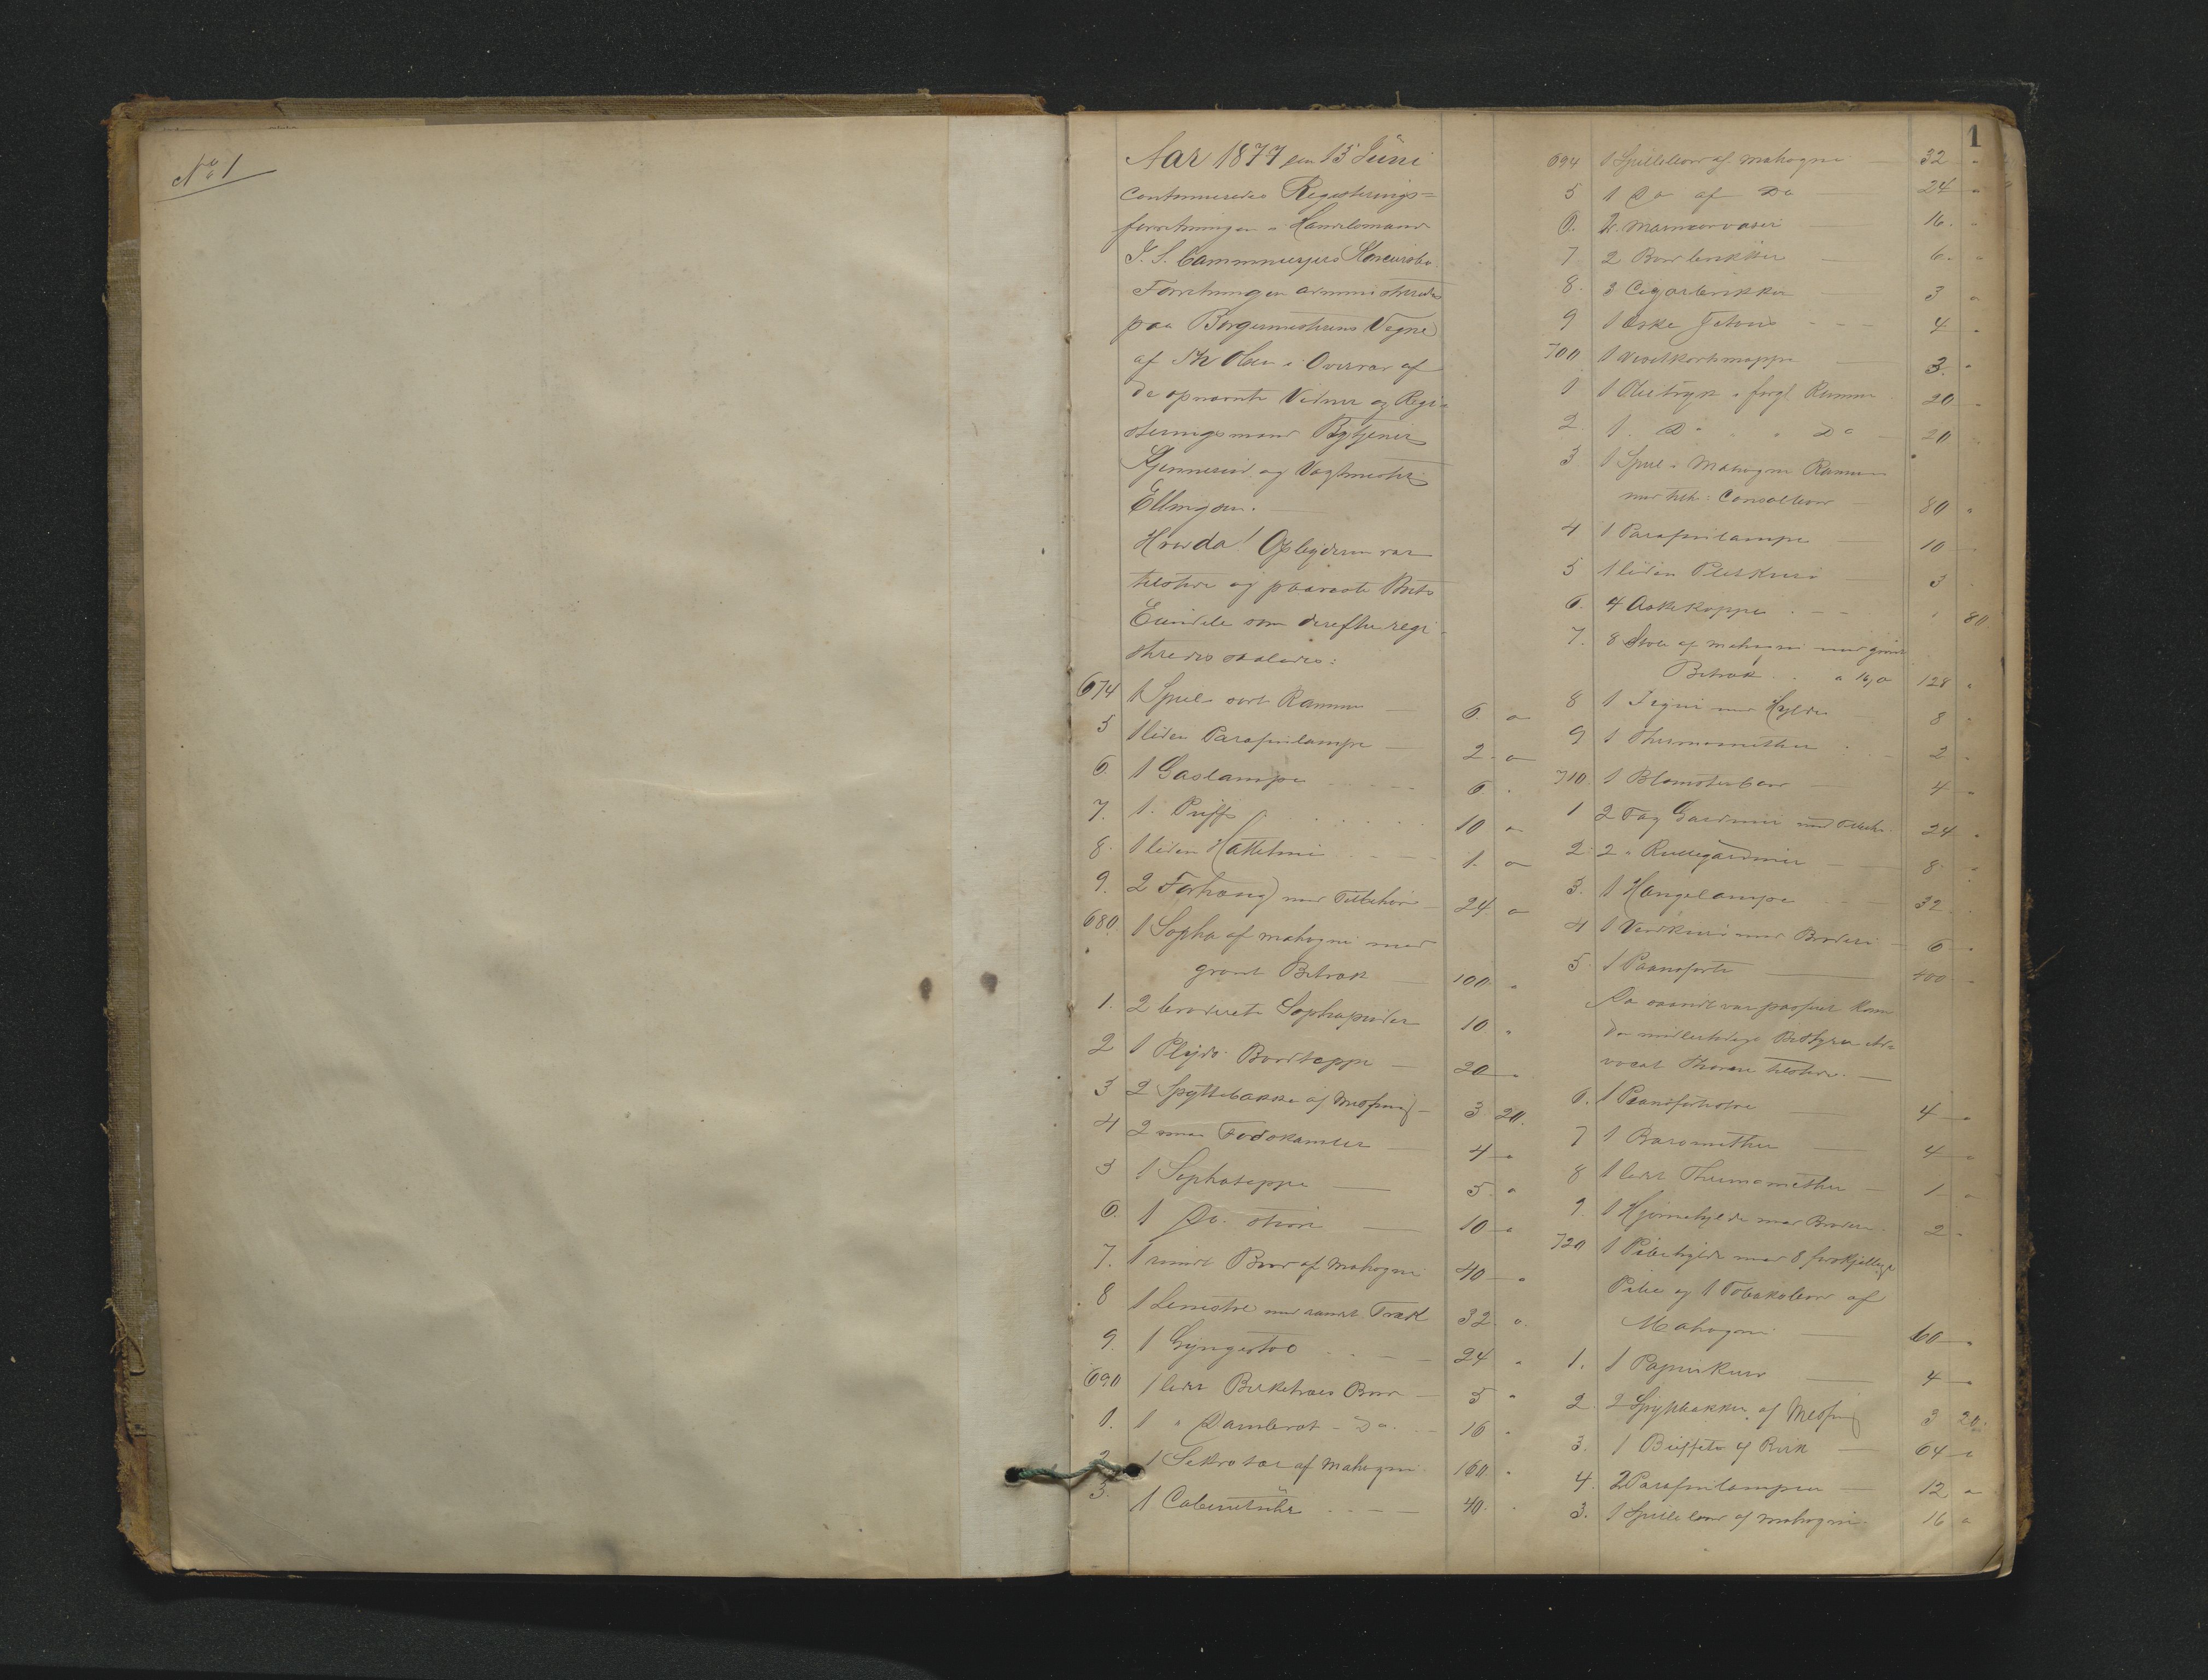 No 1
1
Aar 1877 den 15 Juni
continueredes Registerings=
forretningen i Handelsmand
J. S. Cammermeyers Konkursbo.
Forretningen administreredes
paa Borgermesterens Vegne
af Th Olsen i Overvær af
de opnævnte Vidner og Regi-
steringsmænd Bytjener
og Vagtmester
Ellingsen.
Hvorda! Opbyderen var
tilstede og paaviste Boets
Eiendele som derefter regi-
streredes saaledes:
674 1 Speil sort Ramme — 6 "
5 1 liden Parafinlampe — 2 "
6. 1 Gaslampe 6 "
7. 1 Puff 10 "
8. 1 liden 1 "
9. 2 Forhæng med Tilbehør — 24 "
680. 1 Sopha af mahogni med
grønt Betræk — 100 "
1. 2 broderete Sophapuder 10 "
2 1 Plyds Bordteppe — 20 "
3 2 Spyttebakker af Messing — 3 20.
4 2 smaa Fodskamler — 4 "
5 1 Sophateppe — 5 "
6. 1 Do. større — 10 "
7. 1 rundt Bord af Mahogni 40 "
8 1 Lenestol med Træk 32 "
9. 1 Gyngestol — 24 "
690 1 lidet Birketræes Bord — 5 "
1. 1 " Dambret - Do. — 16 "
2 1 Sekretær af Mahogni 160 "
3. 1 Cabinetsuhr — 40. "
694 1 Spillebord af mahogni — 32 "
5 1 Do af Do 24 "
6. 2 Marmorvaser — 16. "
7 2 Bordbrikker — 6. "
8. 3 Cigarbrikker — 3 "
9 1 Æske Jetons — 4 "
700 1 Visitkortmappe — 3. "
1 1 Olietryk i forgl Ramme 20 "
2. 1. Do " Do — 20 "
3 1 Speil i Mahogni Ramme
med tilh: Consolbord 80 "
4 1 Parafinlampe — 10 "
5 1 liden 3 "
6. 4 Askekopper — " 80
7. 8 Stole af mahogni med grønt
Betræk a 16,0 128 "
8 1 med Hylde 8 "
9 1 Thermomether — 2 "
710 1 Blomsterbord — 4 "
1 2 Fag Gardiner med Tilbeh. 24 "
2. 2 " Rullegardiner — 8. "
3. 1 Hængelampe — 32 "
4 1 Vedkurv med Broderi — 6 "
5. 1 Pianoforte — 400 "
Da saavidt var passeret kom
den midlertidige Bestyrer Ad-
vocat tilstede. —
6. 1 Pianofortestol — 4 "
7 1 Baromether — 4 "
8 1 lidet Thermomether — 1 "
9. 1 Hjørnehylde med Broderi. 2 "
720 1 Pibehylde med 8 forskjellige
Piber og 1 Tobaksbord af
Mahogni — 60 "
1. 1 Papirkurv — 4 "
2. 2 Spyttebakker af Messing 3 20.
3. 1 Buffet af Birk — 64 "
4. 2 Parafinlamper — 12 "
5. 1 Spillebord af mahogni 16 "